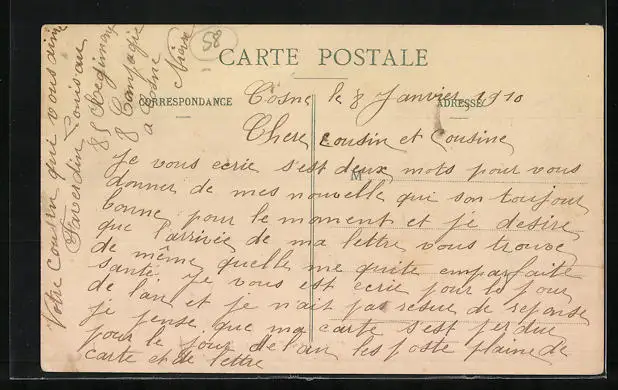 58
CARTE POSTALE
CORRESPONDANCE
ADRESSE
M
Cosne le 8 Janvier 1910
Chere Cousin et Cousine
Je vous ecrie s'est deux mots pour vous
donner de mes nouvelle qui son toujour
bonne pour le moment et je desire
que l'arrivée de ma lettre vous trouve
de même quelle me quite emparfaite
santé. Je vous est ecrie pour le jour
de l'an et je n'ait pas resue de reponse
je pense que ma carte s'est perdue
pour le jour de l'an les poste plaine de
carte et de lettre
Votre Cousin qui vous aime
Faverdin Louis au
85 Regiment
8 Compagie
a Cosne
Nievre